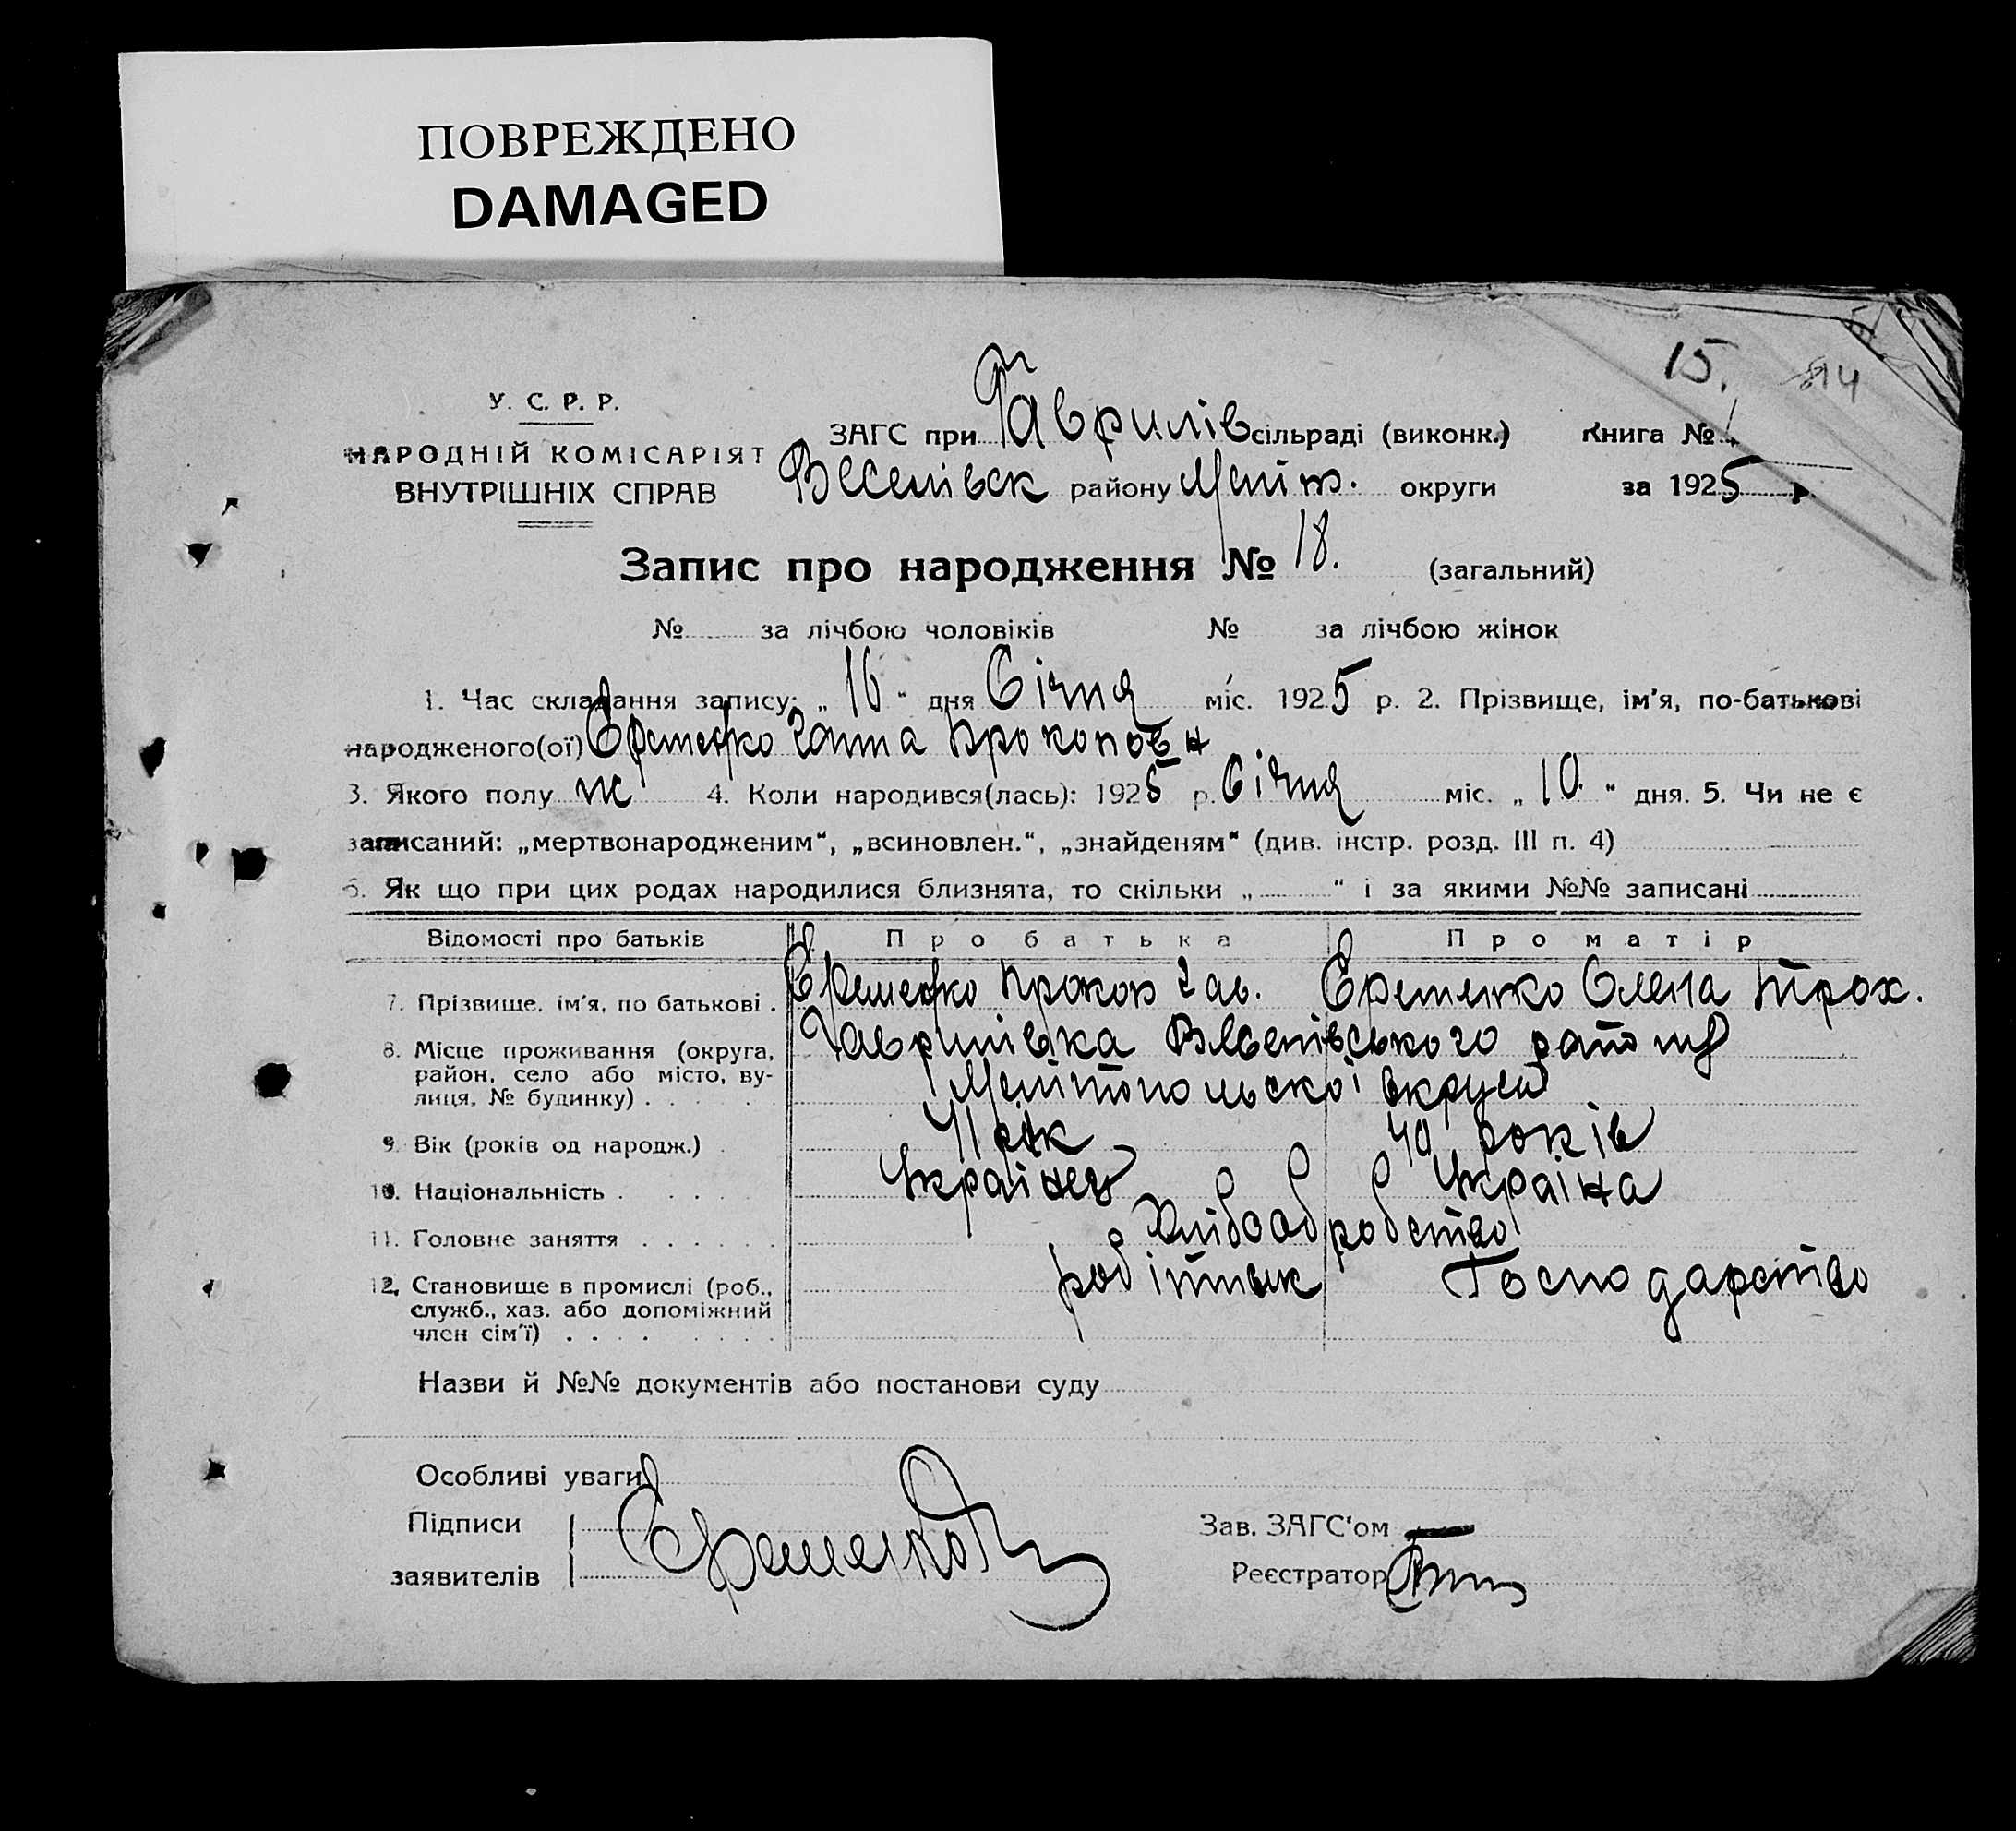 ПОВРЕЖДЕНО
DAMAGED
15.
У. С. Р. Р.
НАРОДНІЙ КОМІСАРІЯТ
ВНУТРІШНІХ СПРАВ
ЗАГС при Гаврилів сільраді (виконк.) Книга № 1
Веселівськ району Меліт. округи за 1925 р.
Запис про народження № 18. (загальний)
№ за лічбою чоловіків № за лічбою жінок
1. Час складання запису: „16“ дня Січня міс. 1925 р. 2. Прізвище, ім'я, по-батькові
народженого(ої) Єременко Ганна Прокоповн
3. Якого полу ж 4. Коли народився(лась): 1925 р. Січня міс. „10.“ дня. 5. Чи не є
записаний: „мертвонародженим“, „всиновлен.“, „знайденям“ (див. інстр. розд. III п. 4)
6. Як що при цих родах народилися близнята, то скільки „ “ і за якими №№ записані
Відомості про батьків Про батька Про матір
7. Прізвище, ім'я, по батькові . Єременко Прокоп Гав. Єременко Олена Трох.
8. Місце проживання (округа, район, село або місто, вулиця, № будинку) . . . . . Гаврилівка Веселівського району
Мелітопольскоі округи
9. Вік (років од народж.) . 41 рік 40 років
10. Національність . . . . . Українец Україна
11. Головне заняття . . . . . . Хлібообробство
12. Становище в промислі (роб., робітник Господарство
служб., хаз. або допоміжний
член сім'ї) . . . . . . . .
Назви й №№ документів або постанови суду
Особливі уваги
Підписи Єременко Зав. ЗАГС'ом
заявителів Реєстратор